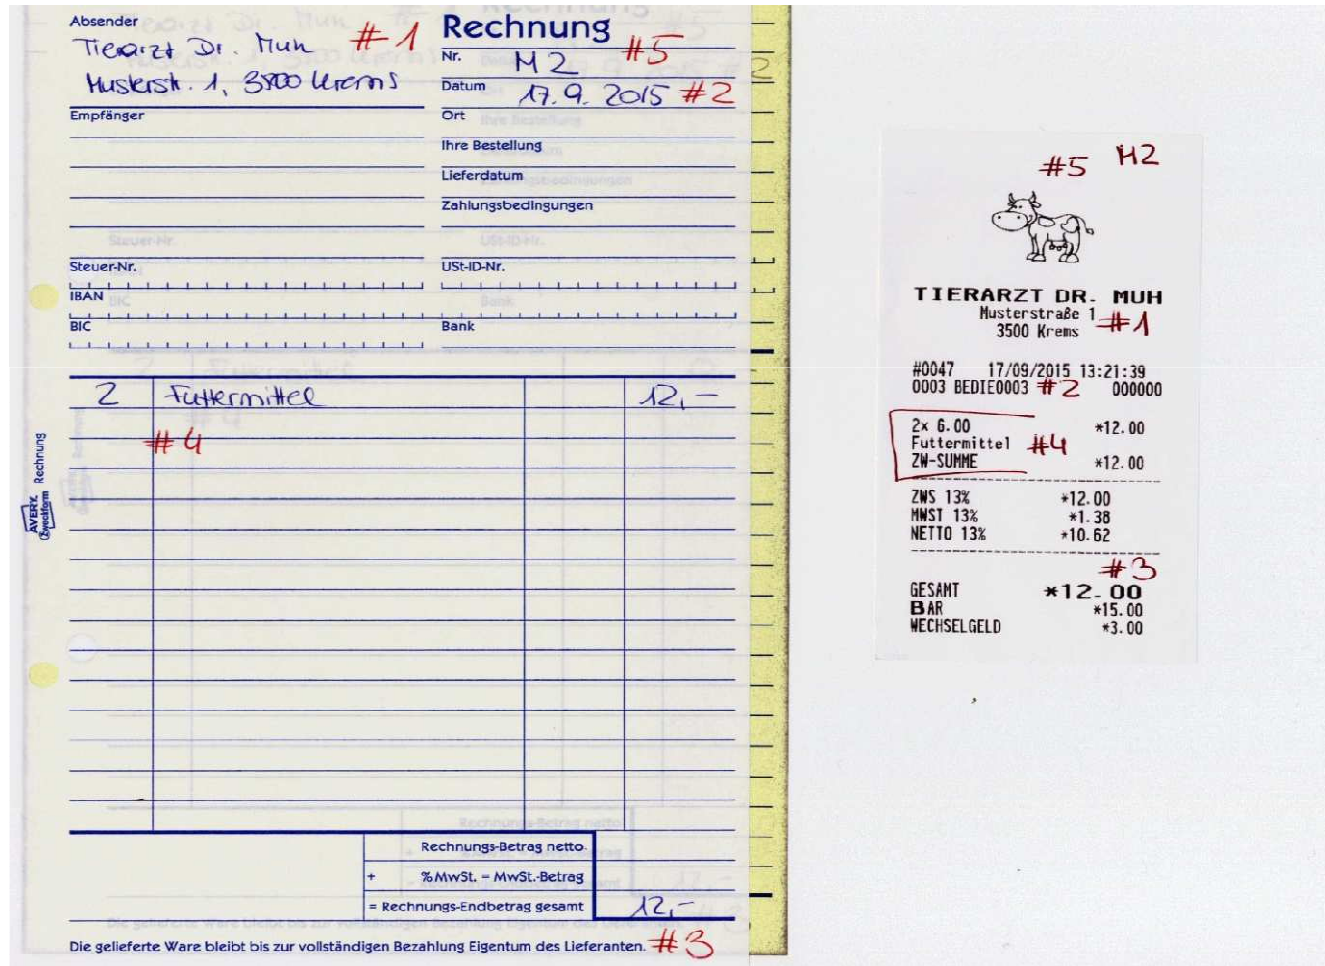 Absender
Tierarzt Dr. Muh #1
Musterstr. 1, 3500 Krems
Rechnung
Nr. M2 #5
Datum 17.9.2015 #2
Empfänger
Ort
Ihre Bestellung
Lieferdatum
Zahlungsbedingungen
Steuer-Nr.
USt-ID-Nr.
IBAN
BIC
Bank
2 Futtermittel 12,–
#4
AVERY Zweckform Rechnung
Rechnungs-Betrag netto
+ %MwSt. = MwSt.-Betrag
= Rechnungs-Endbetrag gesamt 12,–
Die gelieferte Ware bleibt bis zur vollständigen Bezahlung Eigentum des Lieferanten. #3
#5 M2
TIERARZT DR. MUH
Musterstraße 1
3500 Krems #1
#0047 17/09/2015 13:21:39
0003 BEDIE0003 #2 000000
2x 6.00 *12.00
Futtermittel #4
ZW-SUMME *12.00
ZWS 13% *12.00
MWST 13% *1.38
NETTO 13% *10.62
#3
GESAMT *12.00
BAR *15.00
WECHSELGELD *3.00